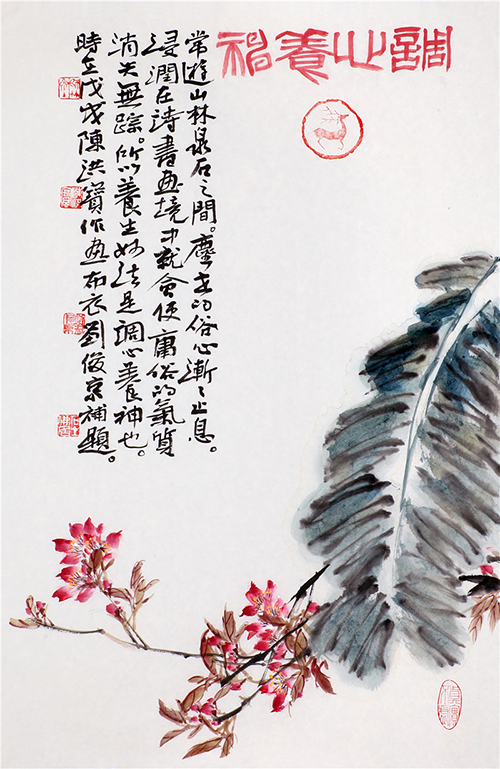 調心養神
常遊山林泉石之間。塵世的俗心漸々止息。
浸潤在詩書画境才就會使庸俗的氣質
消失無踪。所以養生妙法是調心養神也。
時在戊戌陳洪寶作画布衣劉俊京補題。